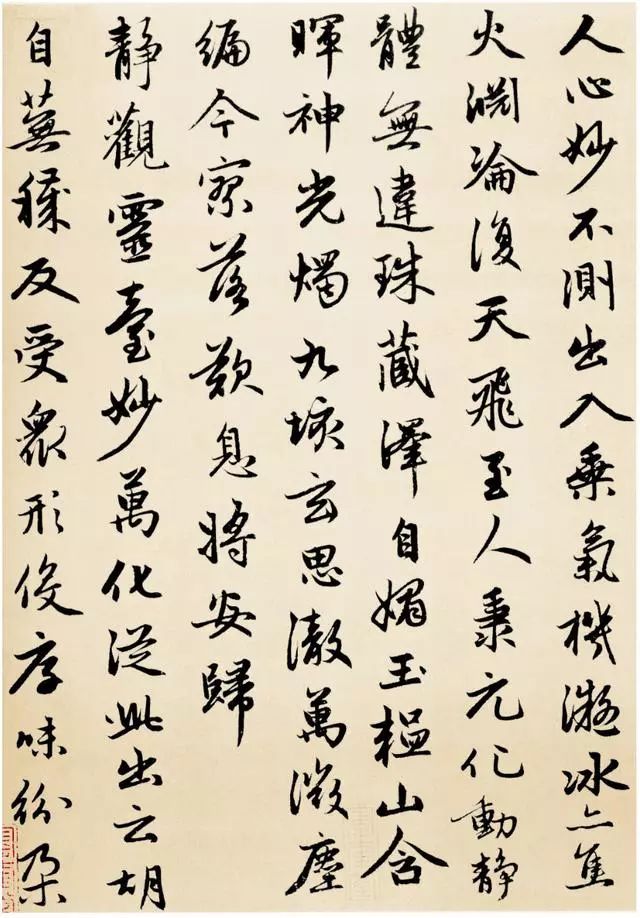 人心妙不測出入乘氣機凝冰亦焦
火淵淪復天飛至人秉元化動靜
體無違珠藏澤自媚玉韞山含
暉神光燭九垓玄思徹萬微塵
編今寥落歎息將安歸
靜觀靈臺妙萬化從此出云胡
自蕪穢反受衆形役厚味紛朵